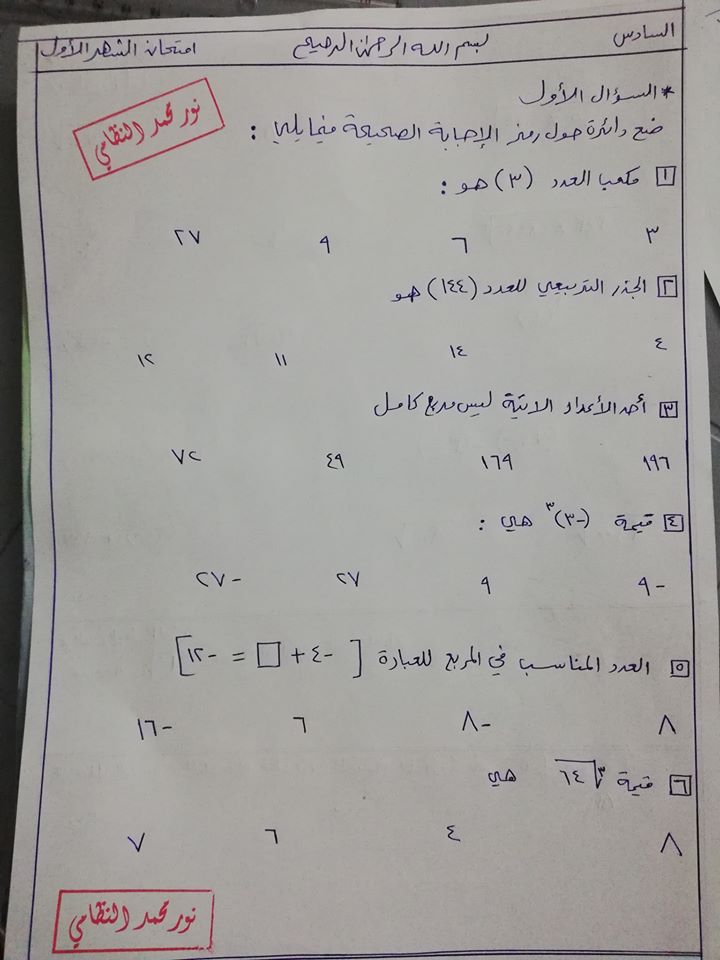 السادس بسم الله الرحمن الرحيم امتحان الشهر الأول
نور محمد النظامي
* السؤال الأول
ضع دائرة حول رمز الإجابة الصحيحة فيما يلي :
١ مكعب العدد (٣) هو :
٣ ٦ ٩ ٢٧
٢ الجذر التربيعي للعدد (١٤٤) هو
٤ ١٤ ١١ ١٢
٣ أحد الأعداد الاتية ليس مربع كامل
١٩٦ ١٦٩ ٤٩ ٧٢
٤ قيمة (-٣)^٣ هي :
-٩ ٩ ٢٧ -٢٧
٥ العدد المناسب في المربع للعبارة [ -٤ + □ = -١٢ ]
٨ -٨ ٦ -١٦
٦ قيمة ∛٦٤ هي
٨ ٤ ٦ ٧
نور محمد النظامي